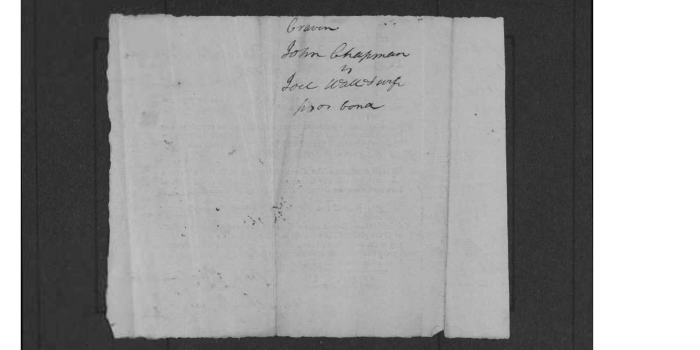 Craven
John Chapman
vs
Joel Wall & wife
pros bond